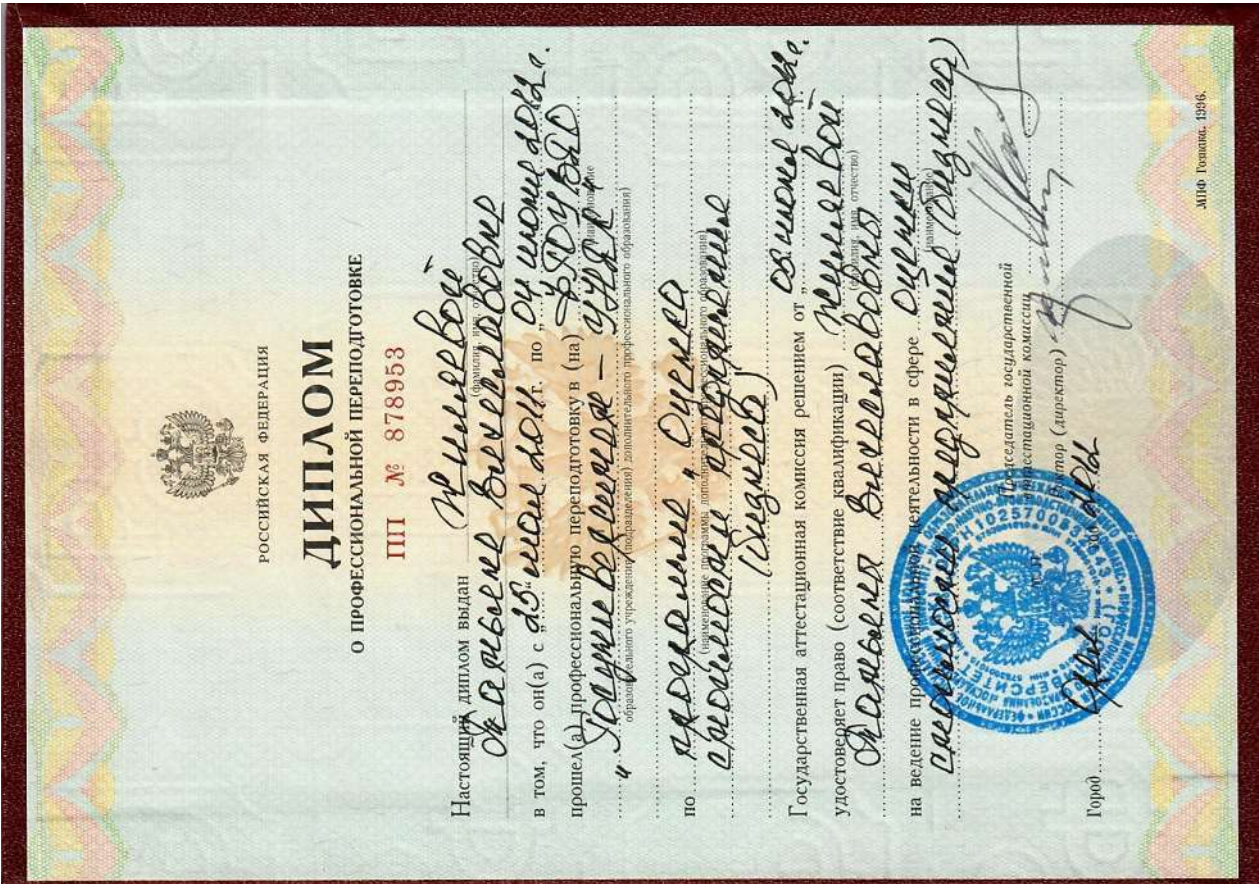 РОССИЙСКАЯ ФЕДЕРАЦИЯ
ДИПЛОМ
О ПРОФЕССИОНАЛЬНОЙ ПЕРЕПОДГОТОВКЕ
ПП № 878953
Настоящий диплом выдан
(фамилия, имя, отчество)
Татьяне Вячеславовне
в том, что он(а) с „25“ 2011 г. по „04 июня 2012г.
прошел(а) профессиональную переподготовку в (на) ФГОУ ВПО
„Госуниверситет – УНПК“
образовательного учреждения (подразделения) дополнительного профессионального образования)
по программе „Оценка
(наименование программы дополнительного профессионального образования)
стоимости предприятия
(бизнеса)
Государственная аттестационная комиссия решением от „08 июня 2012г.
удостоверяет право (соответствие квалификации)
(фамилия, имя, отчество)
Татьяны Вячеславовны
на ведение профессиональной деятельности в сфере оценки
(наименование)
стоимости предприятия (бизнеса)
Председатель государственной
аттестационной комиссии
Ректор (директор)
Город Орел 2012
МПФ Гознака. 1996.